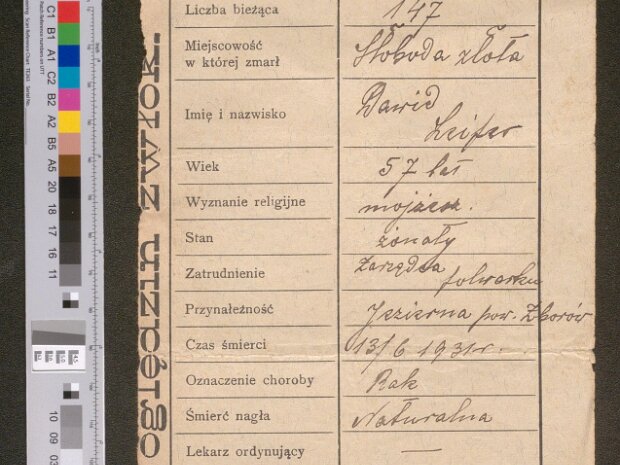 Liczba bieżąca 147
Miejscowość
w której zmarł Słoboda złota
Imię i nazwisko Dawid
Leifer
Wiek 57 lat
Wyznanie religijne mojżesz.
Stan żonaty
Zatrudnienie Zarządca
folwarku
Przynależność Jezierna pow. Zborów
Czas śmierci 13/6. 1931 r.
Oznaczenie choroby Rak
Śmierć nagła Naturalna
Lekarz ordynujący —
C1
B1
A1
C2
B2
A2
B5
A5
20
18
17
16
11
10
09
03